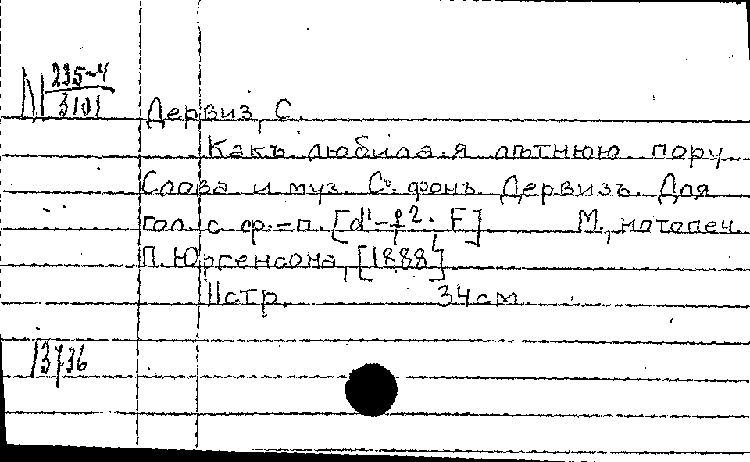 N 235-4
3101
Дервиз, С.
Какъ любила я лѣтнюю пору
Слова и муз. С. фонъ Дервизъ. Для
гол. с фр.-п. [d¹-f². F] М., нотопеч.
П. Юргенсона, [1888]
11стр. 34см.
13736